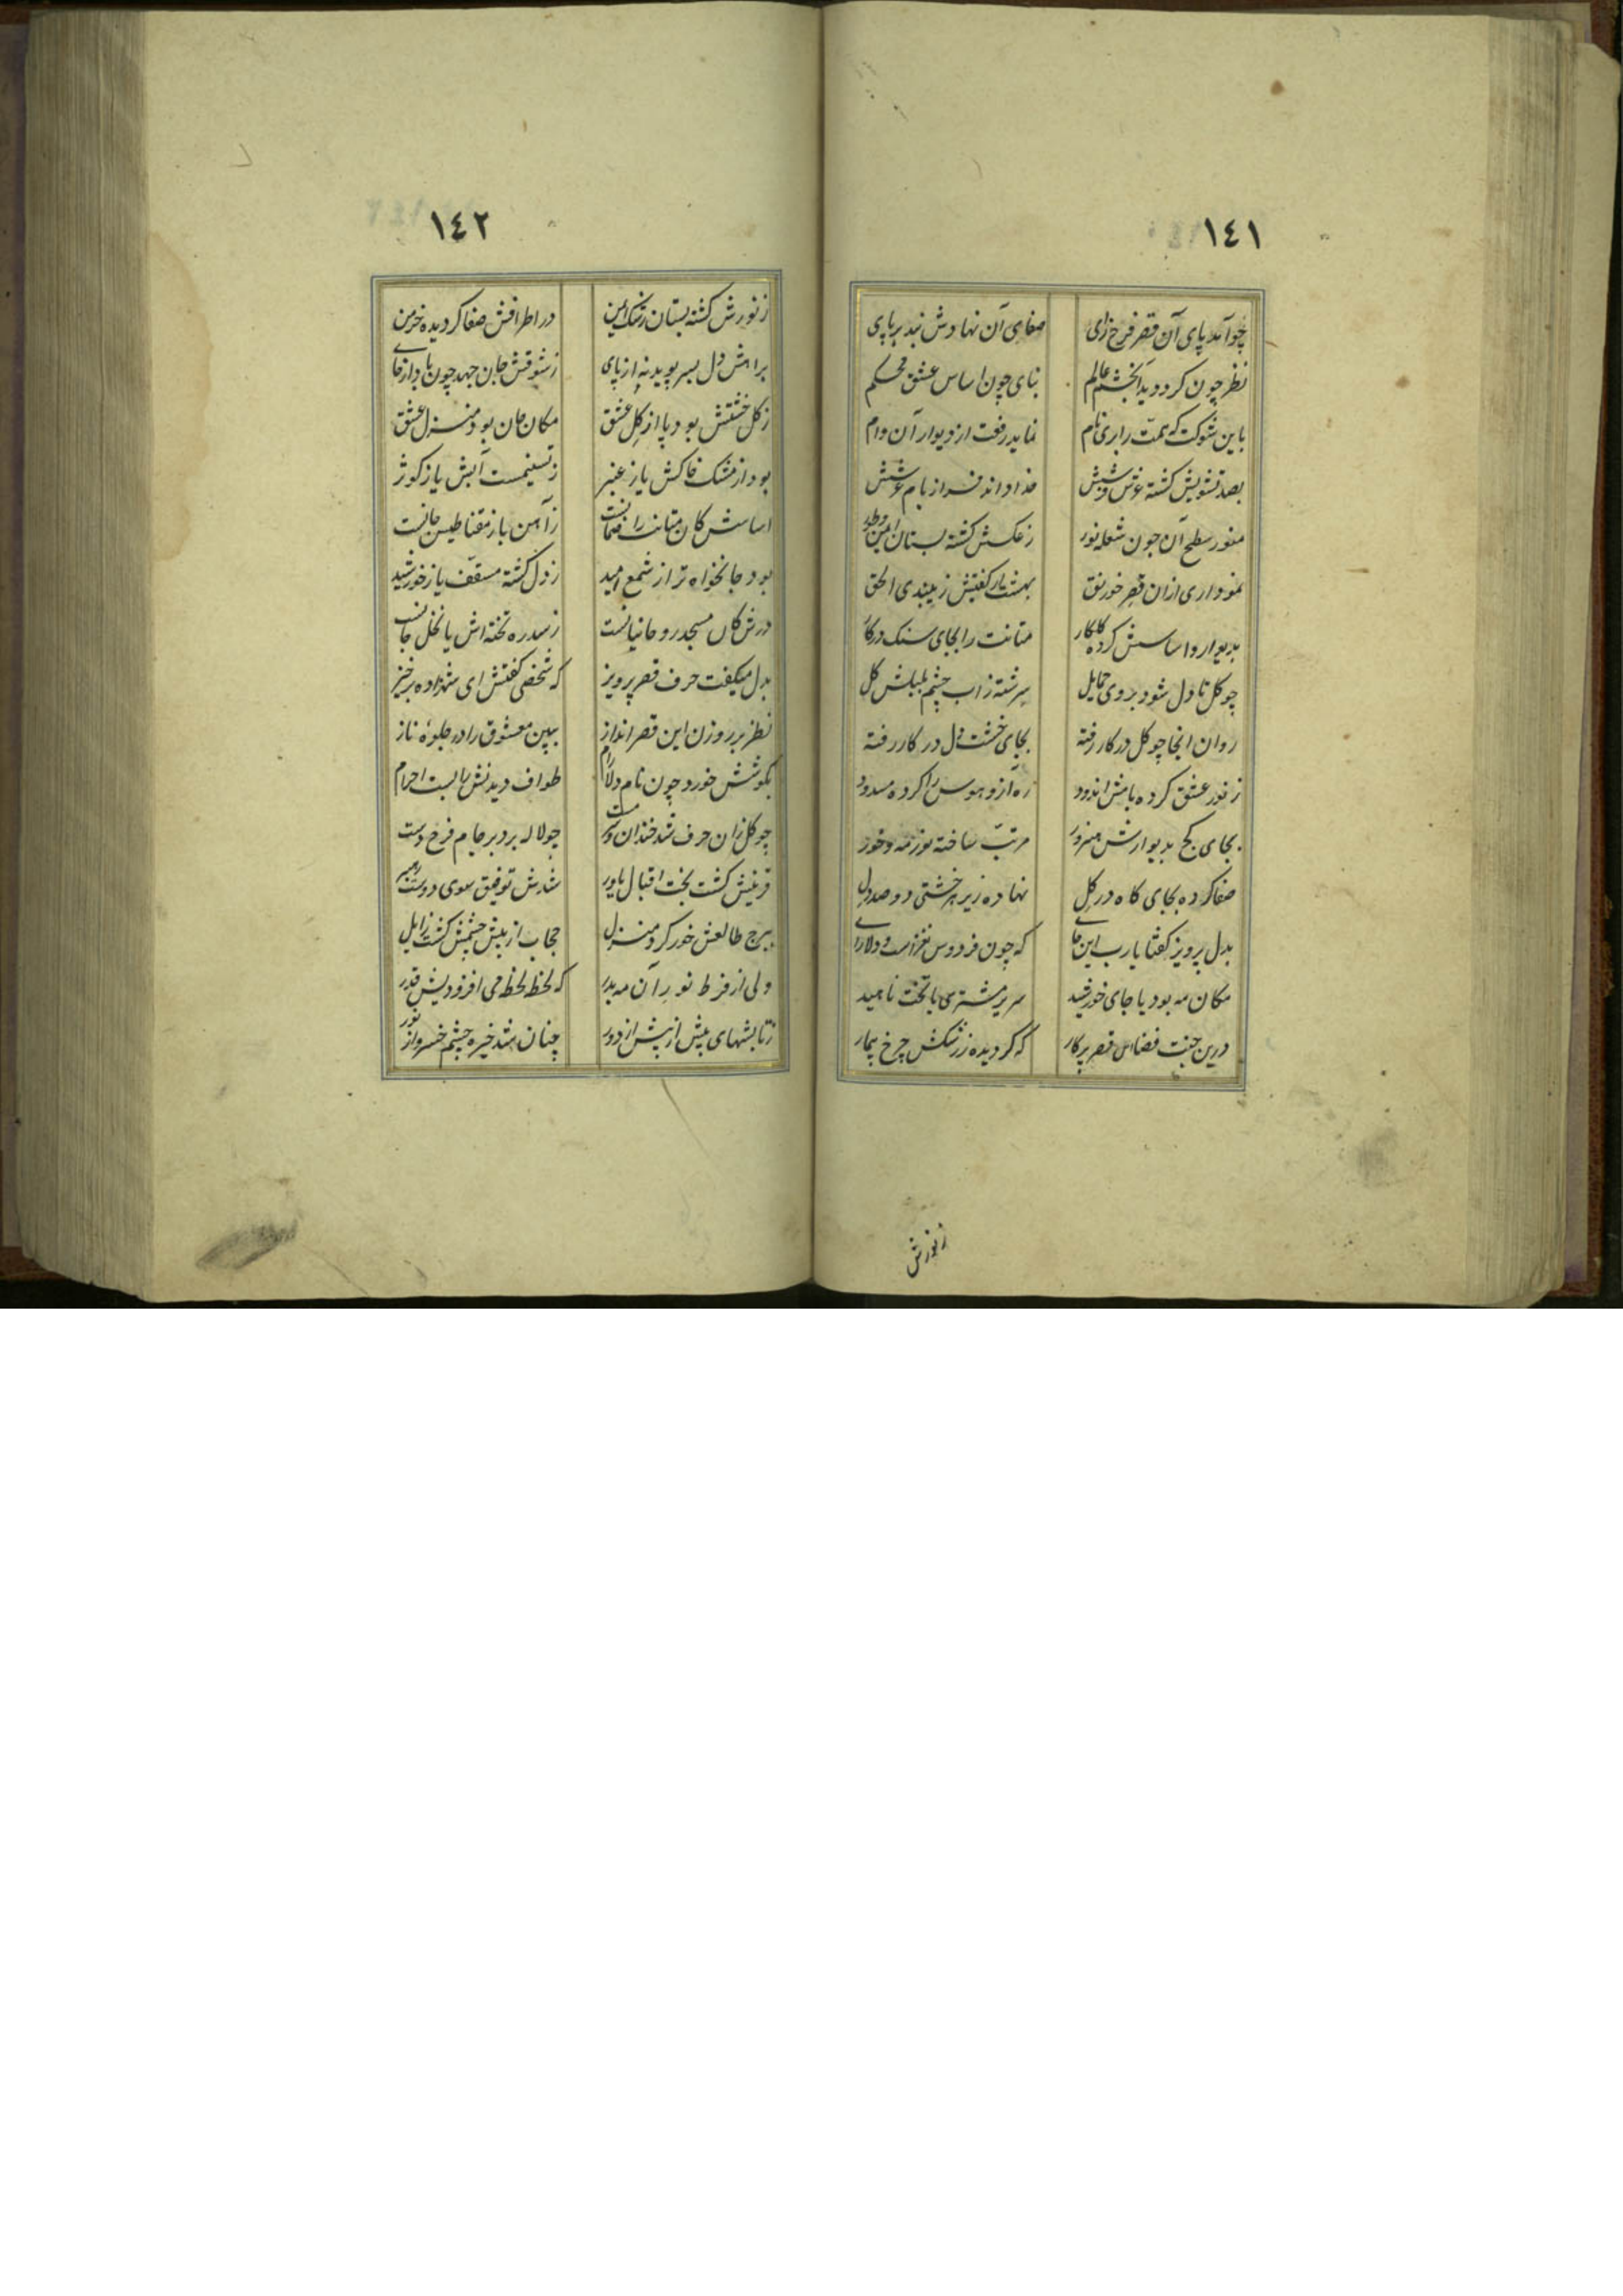 ١٤١
چو آمد پای آن قصر فرح زای صفای آن نهادش بند بر پای
نظر چون کرد دید آنخشم عالم بنای چون اساس عشق محکم
باین شوکت که همت رابری نام نماید رفعت از دیوار آن وام
بصد تشویش کشته عرش فرشش خدا داند فراز بام عرشش
منور سطح آن چون شعله نور ز عکسش کشته بستان ایمن و طور
نمو داری ازان قصر خورنق بهشت ار کفتش زیبندی الحق
بدیوار و اساسش کرده کلکار متانت را بجای سنک در کار
چو کل تا دل شود بروی حمایل سرشته ز اب چشم بلبلش کل
روان انجا چو کل در کار رفته بجای خشت دل در کار رفته
ز نور عشق کرده بامش اندود ره آز و هوس را کرده مسدود
بجای کج بدیوارش هنرور مرتب ساخته نور مه و خور
صفا کرده بجای کاه در کل نهاده زیر هر خشتی دو صد دل
بدل پرویز کفتا یارب این جای که چون فردوس نغزاست و دلارای
مکان مه بود یا جای خورشید سریر مشتری یا تخت ناهید
درین جنت فضا این قصر پرکار که کردیده ز رشکش چرخ بیمار
زنورش
١٤٢
ز نورش کشته بستان رشک ایمن در اطرافش صفا کردیده خرمن
براهش دل بسر پوید نه از پای ز شوقش جان جهد چون باد از جای
ز کل خشتش بود یا از کل عشق مکان جان بود منزل عشق
بود از مشک خاکش یا ز عنبر ز تسنیمست آبش یا ز کوثر
اساسش کان متانت را ضمانست ز آهن یا ز مقناطیس جانست
بود جانخواه تر از شمع امید ز دل کشته مسقف یا ز خورشید
درش کان مسجد روحانیانست ز سدره تخته اش یا نخل جانست
بدل میکفت حرف قصر پرویز که شخصی کفتش ای شهزاده برخیز
نظر بر روزن این قصر انداز ببین معشوق را در جلوهٔ ناز
بکوشش خورد چون نام دلارام طواف دیدنش را بست احرام
چو کل زان حرف شد خندان و سرمست چو لاله برد بر جام فرح دست
قرینش کشت بخت اقبال یاور شدش توفیق سوی دوست رهبر
ببرج طالعش خور کرد منزل حجاب از پیش چشمش کشت زایل
ولی از فرط نور آن مه بدر که لحظ لحظ می افزودیش قدر
ز تابشهای بیش از پیش از دور چنان شد خیره چشم خسرو از نور